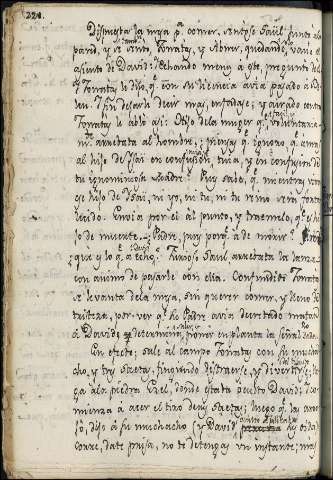 220.
Dispuesta la mesa pª comer, sentose Saul junto a la
pared, y se sento Jonatas, y Abner, quedando vacio el
asiento de David: echando menos a este, pregunto de el
y Jonatas le dijo, q. con su licencia avia pasado à Be-
len. Sin dejarle decir mas, enfadase, y airado contra
Jonatas le abló asi: Hijo de la muger q. voluntaria-
mte. arrebata al hombre, piensas q. ignoro q. amas
al hijo de Isai en confusion tuia, y en confusion de
tu ignominiosa Madre? Pues sabe, q. mientras viva
ese hijo de Isai, ni tu, ni tu reino sera
Envia por el al punto, y traemelo, q. es hi-
jo de muerte. Padre, pues porq. à de morir?
que es lo q. à echo? Saul arrebata la lanza
con animo de pasarle con ella. Jonatas
se levanta de la mesa, sin querer comer, y lleno de
tristeza, por ver q. su Padre avia decretado matar
à David, y determina poner en planta la señal
En efecto; sale al campo Jonatas con su mucha-
cho, y tres saetas, fingiendo distraerse, y divertirse; lle-
ga à la piedra Ezel, donde estaba oculto David; co-
mienza à acer el tiro de las saetas; luego q. las
dijo à su muchacho (y David lo oia)
Corre, date prisa, no te detengas un instante; mas